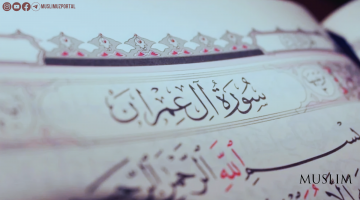 MUSLIMUZPORTAL
سُورَةُ آلِ عِمْرَانَ
بِسْمِ اللَّهِ الرَّحْمَٰنِ الرَّحِيمِ
MUSLIM